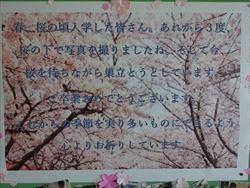 春、桜の頃入学した皆さん。あれから３度、
桜の下で写真を撮りましたね。そして今、
桜を待ちながら巣立とうとしています。
卒業おめでとうございます。
これからの季節を実り多いものにできるよう
心よりお祈りしています。